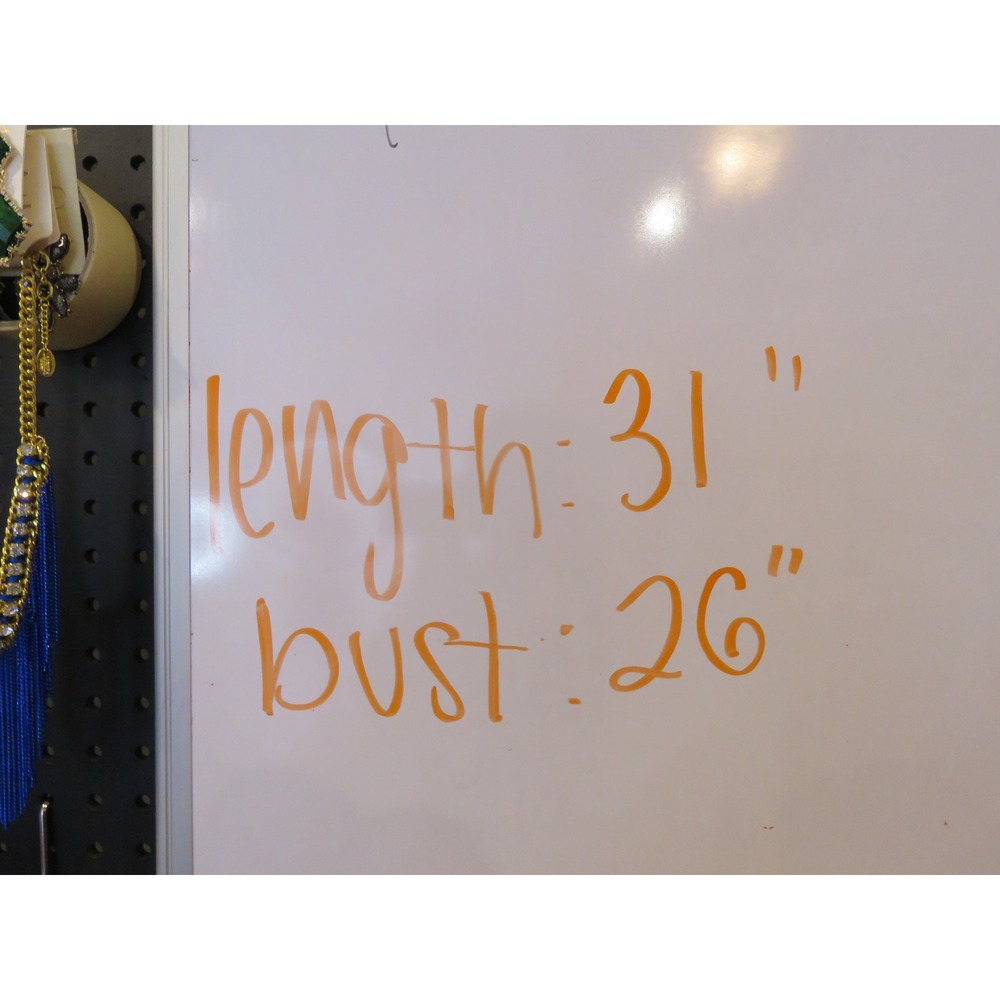 length: 31"
bust: 26"